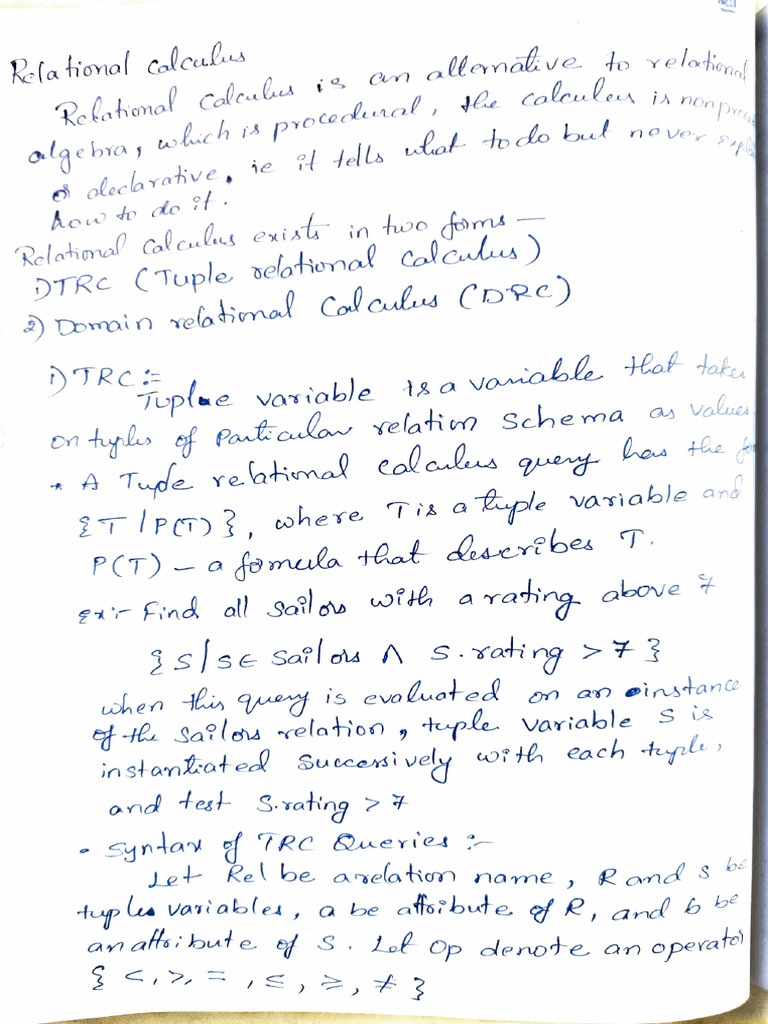 Relational Calculus
Relational Calculus is an alternative to relational
algebra, which is procedural, the calculus is nonproce
or declarative, ie it tells what to do but never expla
how to do it.
Relational Calculus exists in two forms —
1) TRC (Tuple relational Calculus)
2) Domain relational Calculus (DRC)
1) TRC :=
Tuplee variable is a variable that takes
on tuples of Particular relation Schema as values.
* A Tuple relational calculus query has the for
{T | P(T)}, where T is a tuple variable and
P(T) – a formula that describes T.
Ex:- Find all sailors with a rating above 7
{S | S ∈ Sailors ∧ S.rating > 7}
when this query is evaluated on an instance
of the Sailors relation, tuple variable S is
instantiated Successively with each tuple,
and test S.rating > 7
• Syntax of TRC Queries :-
Let Rel be a relation name, R and S be
tuples variables, a be attribute of R, and b be
an attribute of S. Let Op denote an operator
{ <, >, =, ≤, ≥, ≠ }